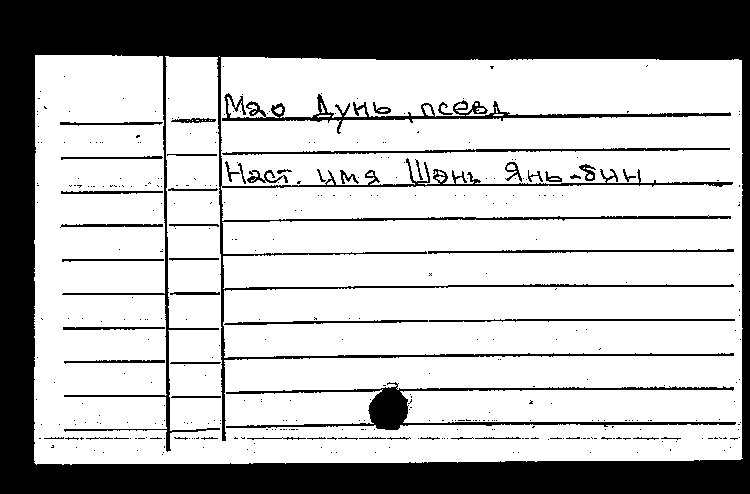 Мао Дунь, псевд
Наст. имя Шэнь Янь-бин.